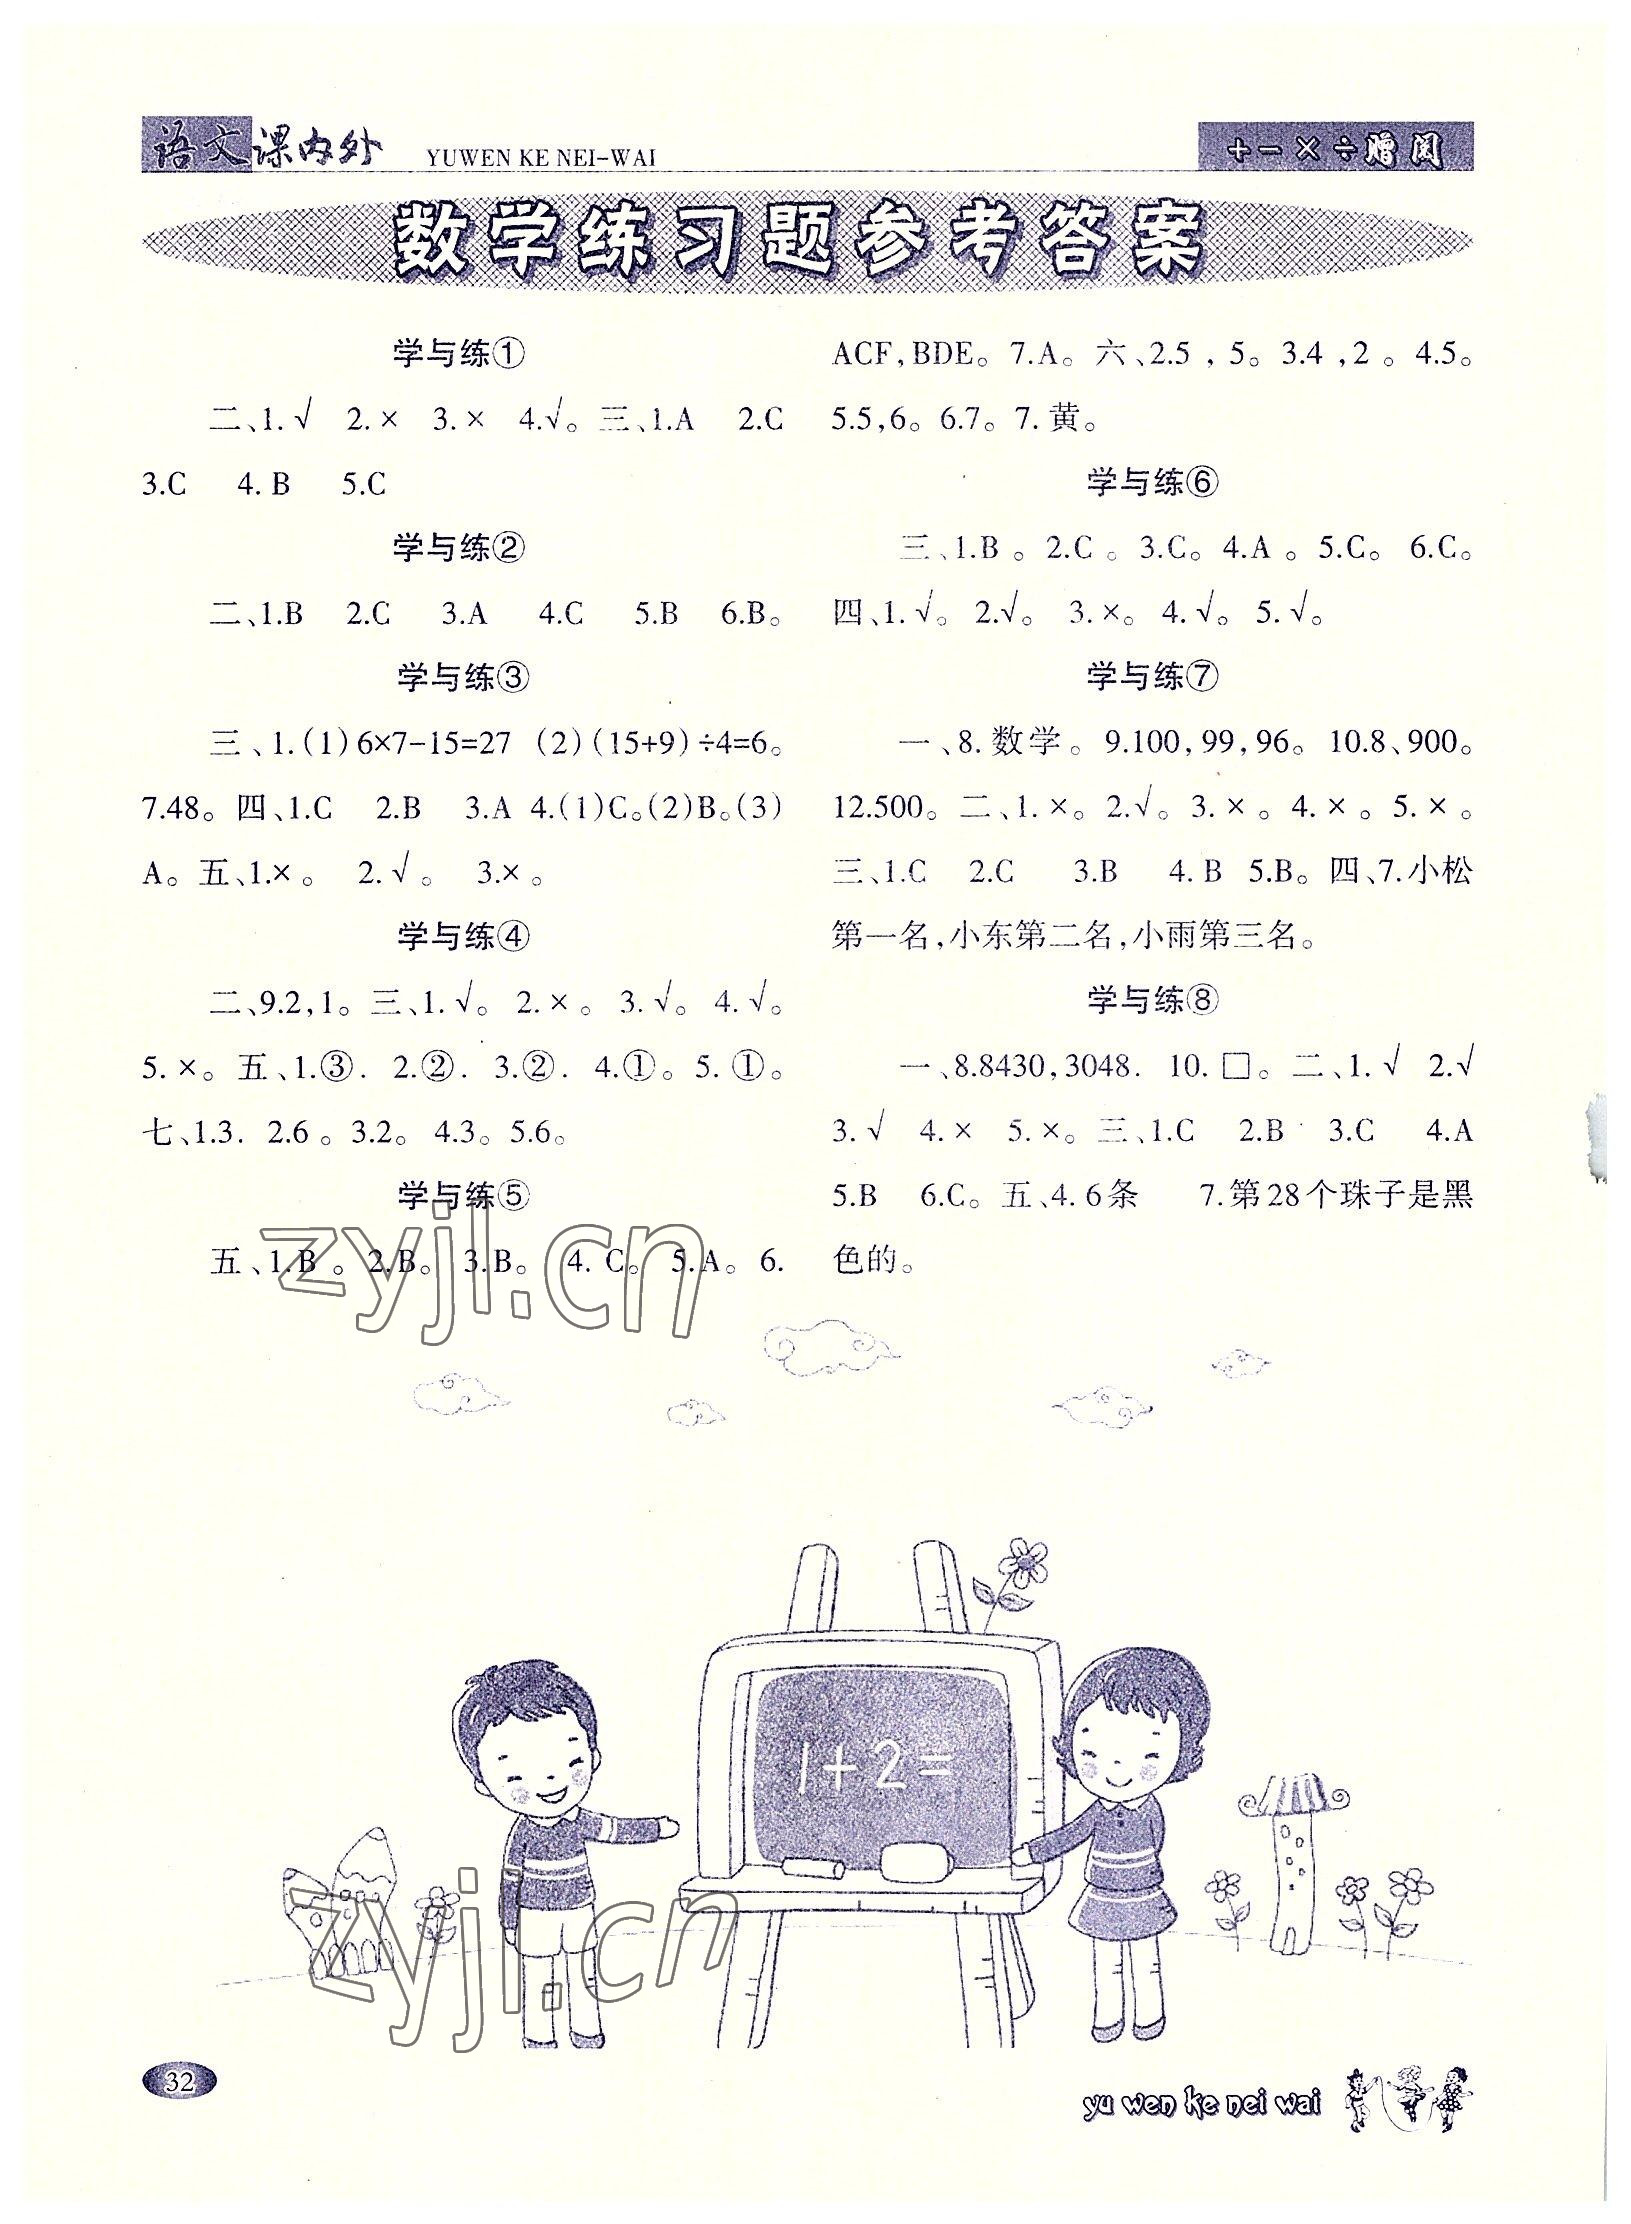 语文课内外 YUWEN KE NEI-WAI
+-×÷赠阅
数学练习题参考答案
学与练①
二、1.√ 2.× 3.× 4.√。三、1.A 2.C
3.C 4.B 5.C
学与练②
二、1.B 2.C 3.A 4.C 5.B 6.B。
学与练③
三、1.(1)6×7-15=27 (2)(15+9)÷4=6。
7.48。四、1.C 2.B 3.A 4.(1)C。(2)B。(3)
A。五、1.×。 2.√。 3.×。
学与练④
二、9.2,1。三、1.√。 2.×。 3.√。 4.√。
5.×。五、1.③. 2.②. 3.②. 4.①。5.①。
七、1.3. 2.6。3.2。 4.3。5.6。
学与练⑤
五、1.B。2.B。3.B。4.C。5.A。6.
ACF,BDE。7.A。六、2.5,5。3.4,2。4.5。
5.5,6。6.7。7.黄。
学与练⑥
三、1.B。2.C。3.C。4.A。5.C。6.C。
四、1.√。2.√。3.×。4.√。5.√。
学与练⑦
一、8.数学。9.100,99,96。10.8、900。
12.500。二、1.×。2.√。3.×。4.×。5.×。
三、1.C 2.C 3.B 4.B 5.B。四、7.小松
第一名,小东第二名,小雨第三名。
学与练⑧
一、8.8430,3048. 10.□。二、1.√ 2.√
3.√ 4.× 5.×。三、1.C 2.B 3.C 4.A
5.B 6.C。五、4.6条 7.第28个珠子是黑
色的。
zyjl.cn
1+2=
zyjl.cn
32
yu wen ke nei wai